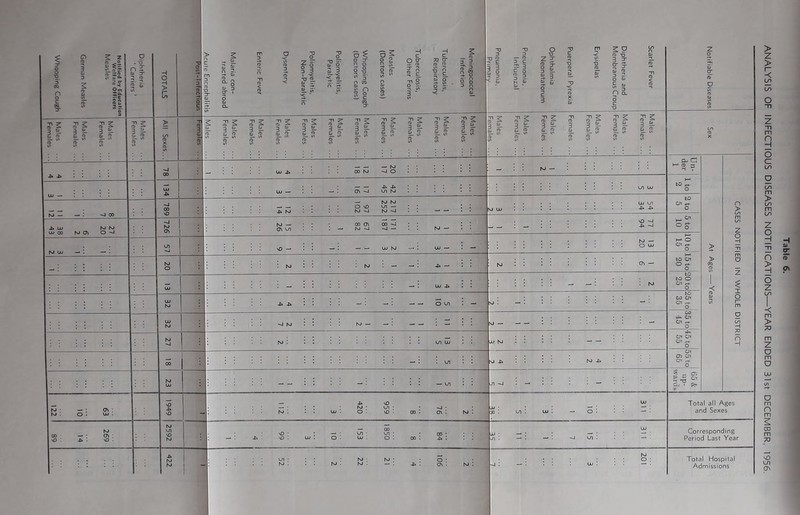 Table 6.
ANALYSIS OF INFECTIOUS DISEASES NOTIFICATIONS—YEAR ENDED 31st DECEMBER, 1956.
Notifiable Diseases Sex CASES NOTIFIED IN WHOLE DISTRICT Total all Ages and Sexes Corresponding Period Last Year Total Hospital Admissions
At Ages—Years
Un-der 1 1 to 2 2 to 5 5 to 10 10 to 15 15 to 20 20 to 25 25 to 35 35 to 45 45 to 55 55 to 65 65 & up-wards
Scarlet Fever Males ... 3 54 77 13 1 2 ... 1 ... ... ...
Females ... 5 34 94 20 6 ... 1 ... ... ... ... 311 311 201
Diphtheria and Membranous Croup Males
Females
Erysipelas Males ... 1 ... 1 4 1
Females ... 1 2 ... 10 15 3
Puerperal Pyrexia Females ... 1 ... 1 7 ...
Ophthalmia Neonatorum Males 1
Females 2 ... 3 1 3
Pneumonia, Influenzal Males
Females ... 5 11 1
Pneumonia, Primary Males 1 ... 3 1 ... 2 ... ... 1 2 4 7
Females ... ... 2 1 ... ... ... 2 2 3 2 5 38 35 7
Meningococcal Infection Males ... 1 ... 1
Females ... 2 ... 2
Tuberculosis, Respiratory Males ... ... 1 1 1 1 4 5 11 13 5 5
Females ... ... 1 2 3 4 3 10 ... 5 ... 1 76 84 106
Tuberculosis, Other Forms Males
Females ... 8 8 4
Measles (Doctors cases) Males 20 42 217 171 2
Females 17 45 252 187 3 ... 959 1850 21
Whooping Cough (Doctors cases) Males 12 17 97 67 1 2 ... 1
Females 18 16 102 82 1 ... 2 ... 1 420 153 22
Poliomyelitis, Paralytic Males
Females ... 1 ... 10 2
Poliomyelitis, Non-Paralytic Males
Females ... 3 3 2
Dysentery Males 4 1 12 15 1 2 1 4 2 ... ... 1
Females 3 3 14 26 9 ... ... 4 7 2 ... 1 112 99 52
Enteric Fever Males
Females ... 4 ...
Malaria contracted abroad Males
Females ... 1 ...
Acute Encephalitis Males 1
Post-Infectious Females ... 1 ... 1
TOTALS All Sexes 78 134 789 726 57 20 13 32 32 27 18 23 1949 2592 422
Diphtheria ‘Carriers’ Males
Females
Notified by Education Welfare Officers
Measles Males ... 8 27
Females ... 7 20 1 ... 63 269 ...
German Measles Males ... 6
Females ... 1 2 1 ... 10 14 ...
Whooping Cough Males 4 1 11 38 3
Females 4 3 12 43 2 1 ... 122 89 ...